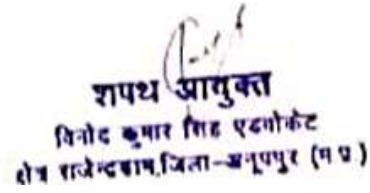 शपथ आयुक्त
विनोद कुमार सिंह एडवोकेट
क्षेत्र राजेन्द्रग्राम, जिला-अनूपपुर (म प्र)